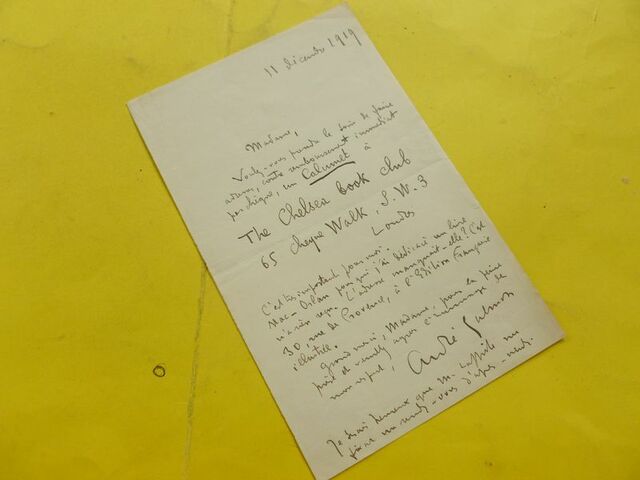 11 décembre 1919
Madame,
Voulez-vous prendre le soin de faire
adresser, contre remboursement immédiat
par chèque, un Calumet à
The Chelsea book club
65 Cheyne Walk, S.W.3
Londres
C'est très important pour moi.
Mac-Orlan pour qui j'ai dédicacé un livre
n'a rien reçu. L'adresse manquait-elle? C'est
30, rue de Provence, à l'Edition Française
illustrée.
Grand merci, Madame, pour la peine
prise et veuillez agréer l'hommage de
mon respect,
André Salmon
Je serais heureux que M. Laffitte me
fixe un rendez-vous d'après-midi.